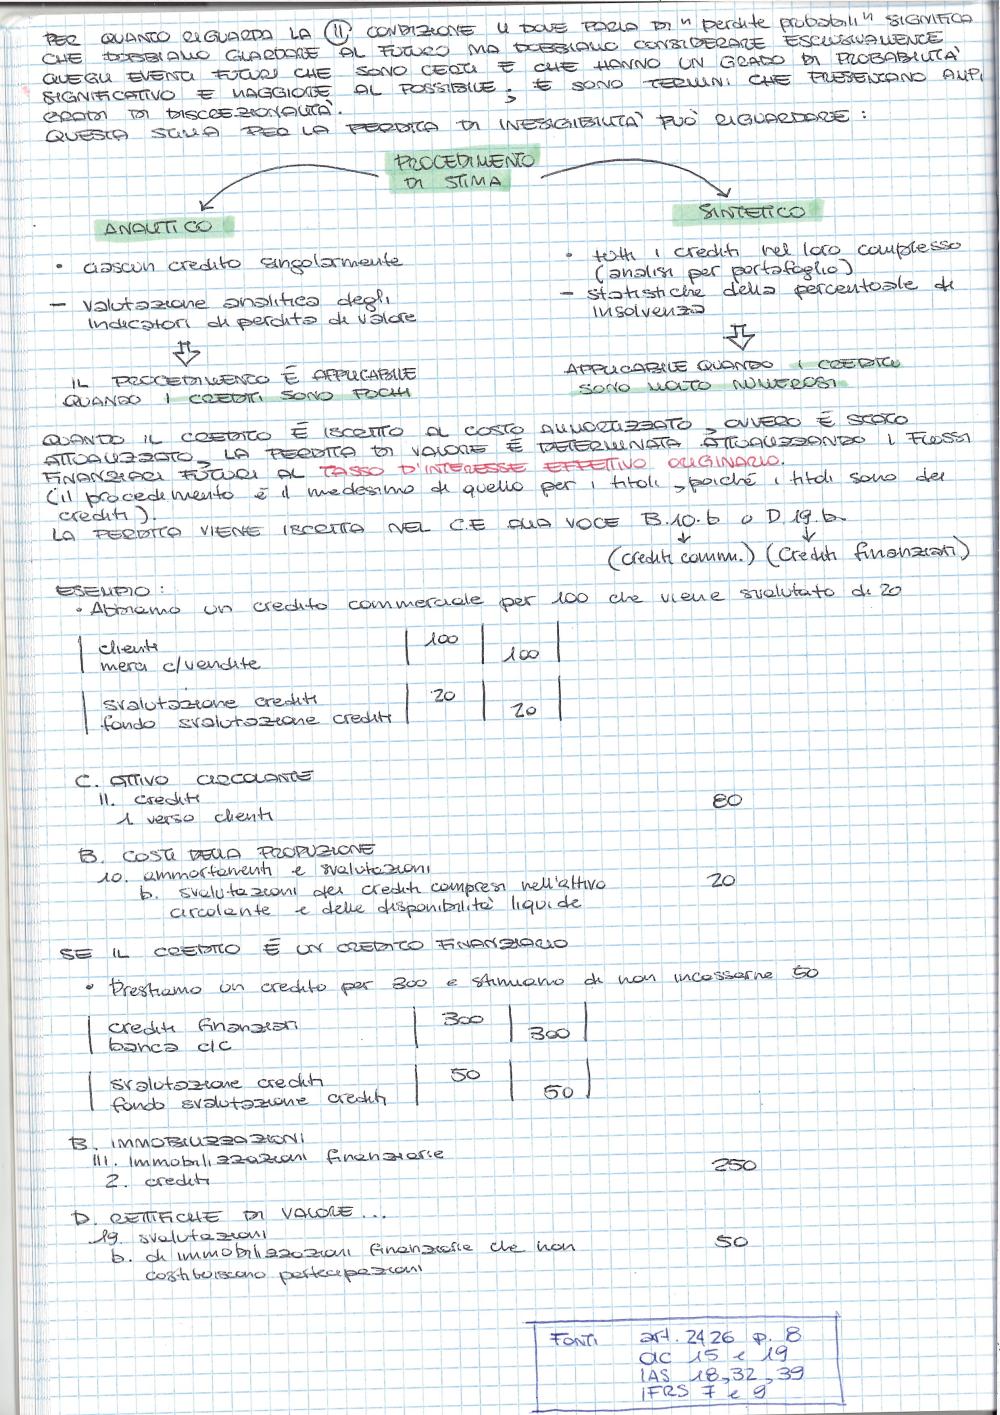 PER QUANTO RIGUARDA LA (II) CONDIZIONE LÌ DOVE PARLA DI "perdite probabili" SIGNIFICA
CHE DOBBIAMO GUARDARE AL FUTURO MA DOBBIAMO CONSIDERARE ESCLUSIVAMENTE
QUEGLI EVENTI FUTURI CHE SONO CERTI E CHE HANNO UN GRADO DI PROBABILITA'
SIGNIFICATIVO E MAGGIORE AL POSSIBILE; E SONO TERMINI CHE PRESENTANO AMPI
GRADI DI DISCREZIONALITÀ.
QUESTA STIMA PER LA PERDITA DI INESIGIBILITA' PUÒ RIGUARDARE:
PROCEDIMENTO
DI STIMA
ANALITICO
• ciascun credito singolarmente
– valutazione analitica degli
indicatori di perdita di valore
IL PROCEDIMENTO É APPLICABILE
QUANDO I CREDITI SONO POCHI
SINTETICO
• tutti i crediti nel loro complesso
(analisi per portafoglio)
– statistiche della percentuale di
insolvenza
APPLICABILE QUANDO I CREDITI
SONO MOLTO NUMEROSI
QUANDO IL CREDITO É ISCRITTO AL COSTO AMMORTIZZATO, OVVERO É STATO
ATTUALIZZATO, LA PERDITA DI VALORE É DETERMINATA ATTUALIZZANDO I FLUSSI
FINANZIARI FUTURI AL TASSO D'INTERESSE EFFETTIVO ORIGINARIO.
(il procedimento é il medesimo di quello per i titoli, poiché i titoli sono dei
crediti).
LA PERDITA VIENE ISCRITTA NEL C.E ALLA VOCE B.10.b o D.19.b
(crediti comm.) (crediti finanziari)
ESEMPIO:
• Abbiamo un credito commerciale per 100 che viene svalutato di 20
clienti 100
merci c/vendite 100
svalutazione crediti 20
fondo svalutazione crediti 20
C. ATTIVO CIRCOLANTE
II. crediti 80
1 verso clienti
B. COSTI DELLA PRODUZIONE
10. ammortamenti e svalutazioni
b. svalutazioni dei crediti compresi nell'attivo 20
circolante e delle disponibilità liquide
SE IL CREDITO É UN CREDITO FINANZIARIO
• Prestiamo un credito per 300 e stimiamo di non incassarne 50
crediti finanziari 300
banca c/c 300
svalutazione crediti 50
fondo svalutazione crediti 50
B. IMMOBILIZZAZIONI
III. immobilizzazioni finanziarie 250
2. crediti
D. RETTIFICHE DI VALORE...
19. svalutazioni
b. di immobilizzazioni finanziarie che non 50
costituiscono partecipazioni
FONTI art. 2426 p. 8
OIC 15 e 19
IAS 18, 32, 39
IFRS 7 e 9